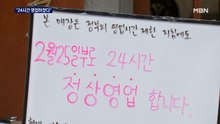 "24시간 영업하겠다"
MBN
본 매장은 정부의 영업시간 제한 지침에도
2월25일부로 24시간
정상영업 합니다.